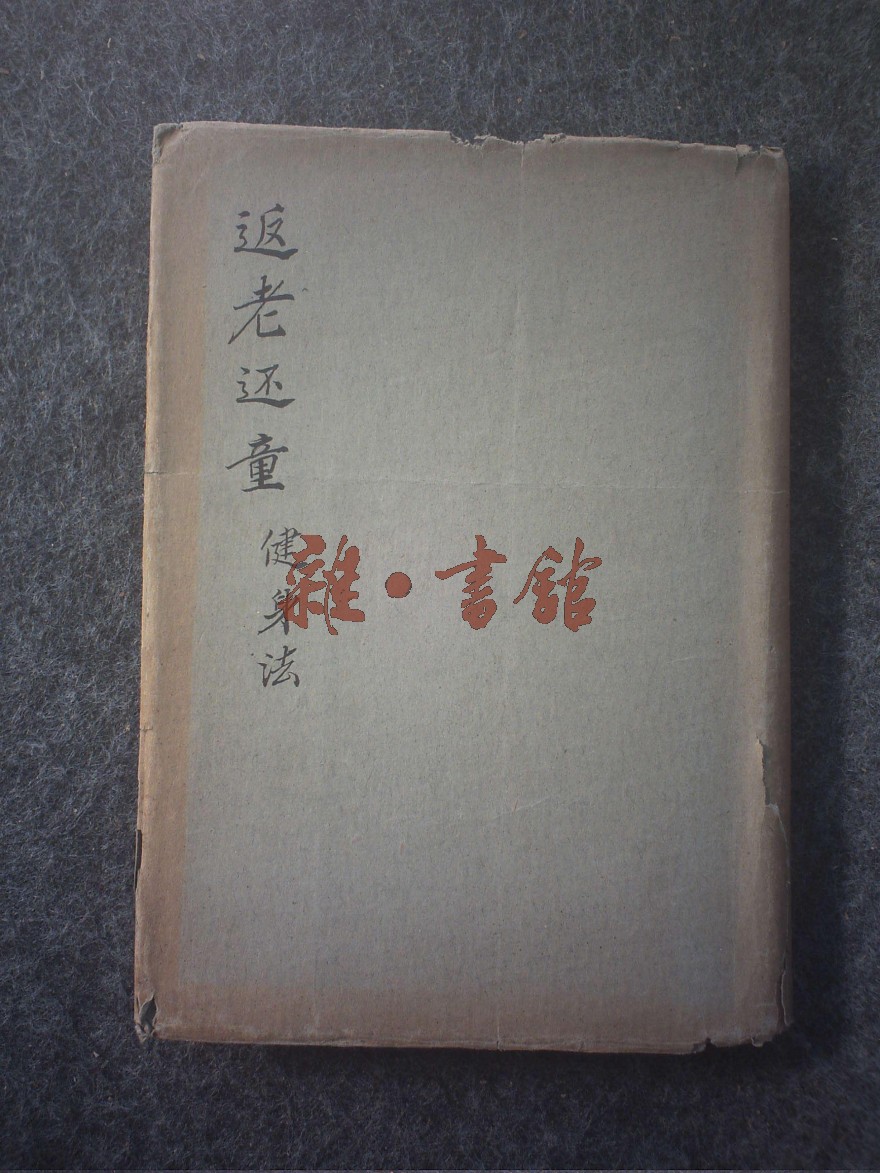 返老还童
健身法
雜·書館